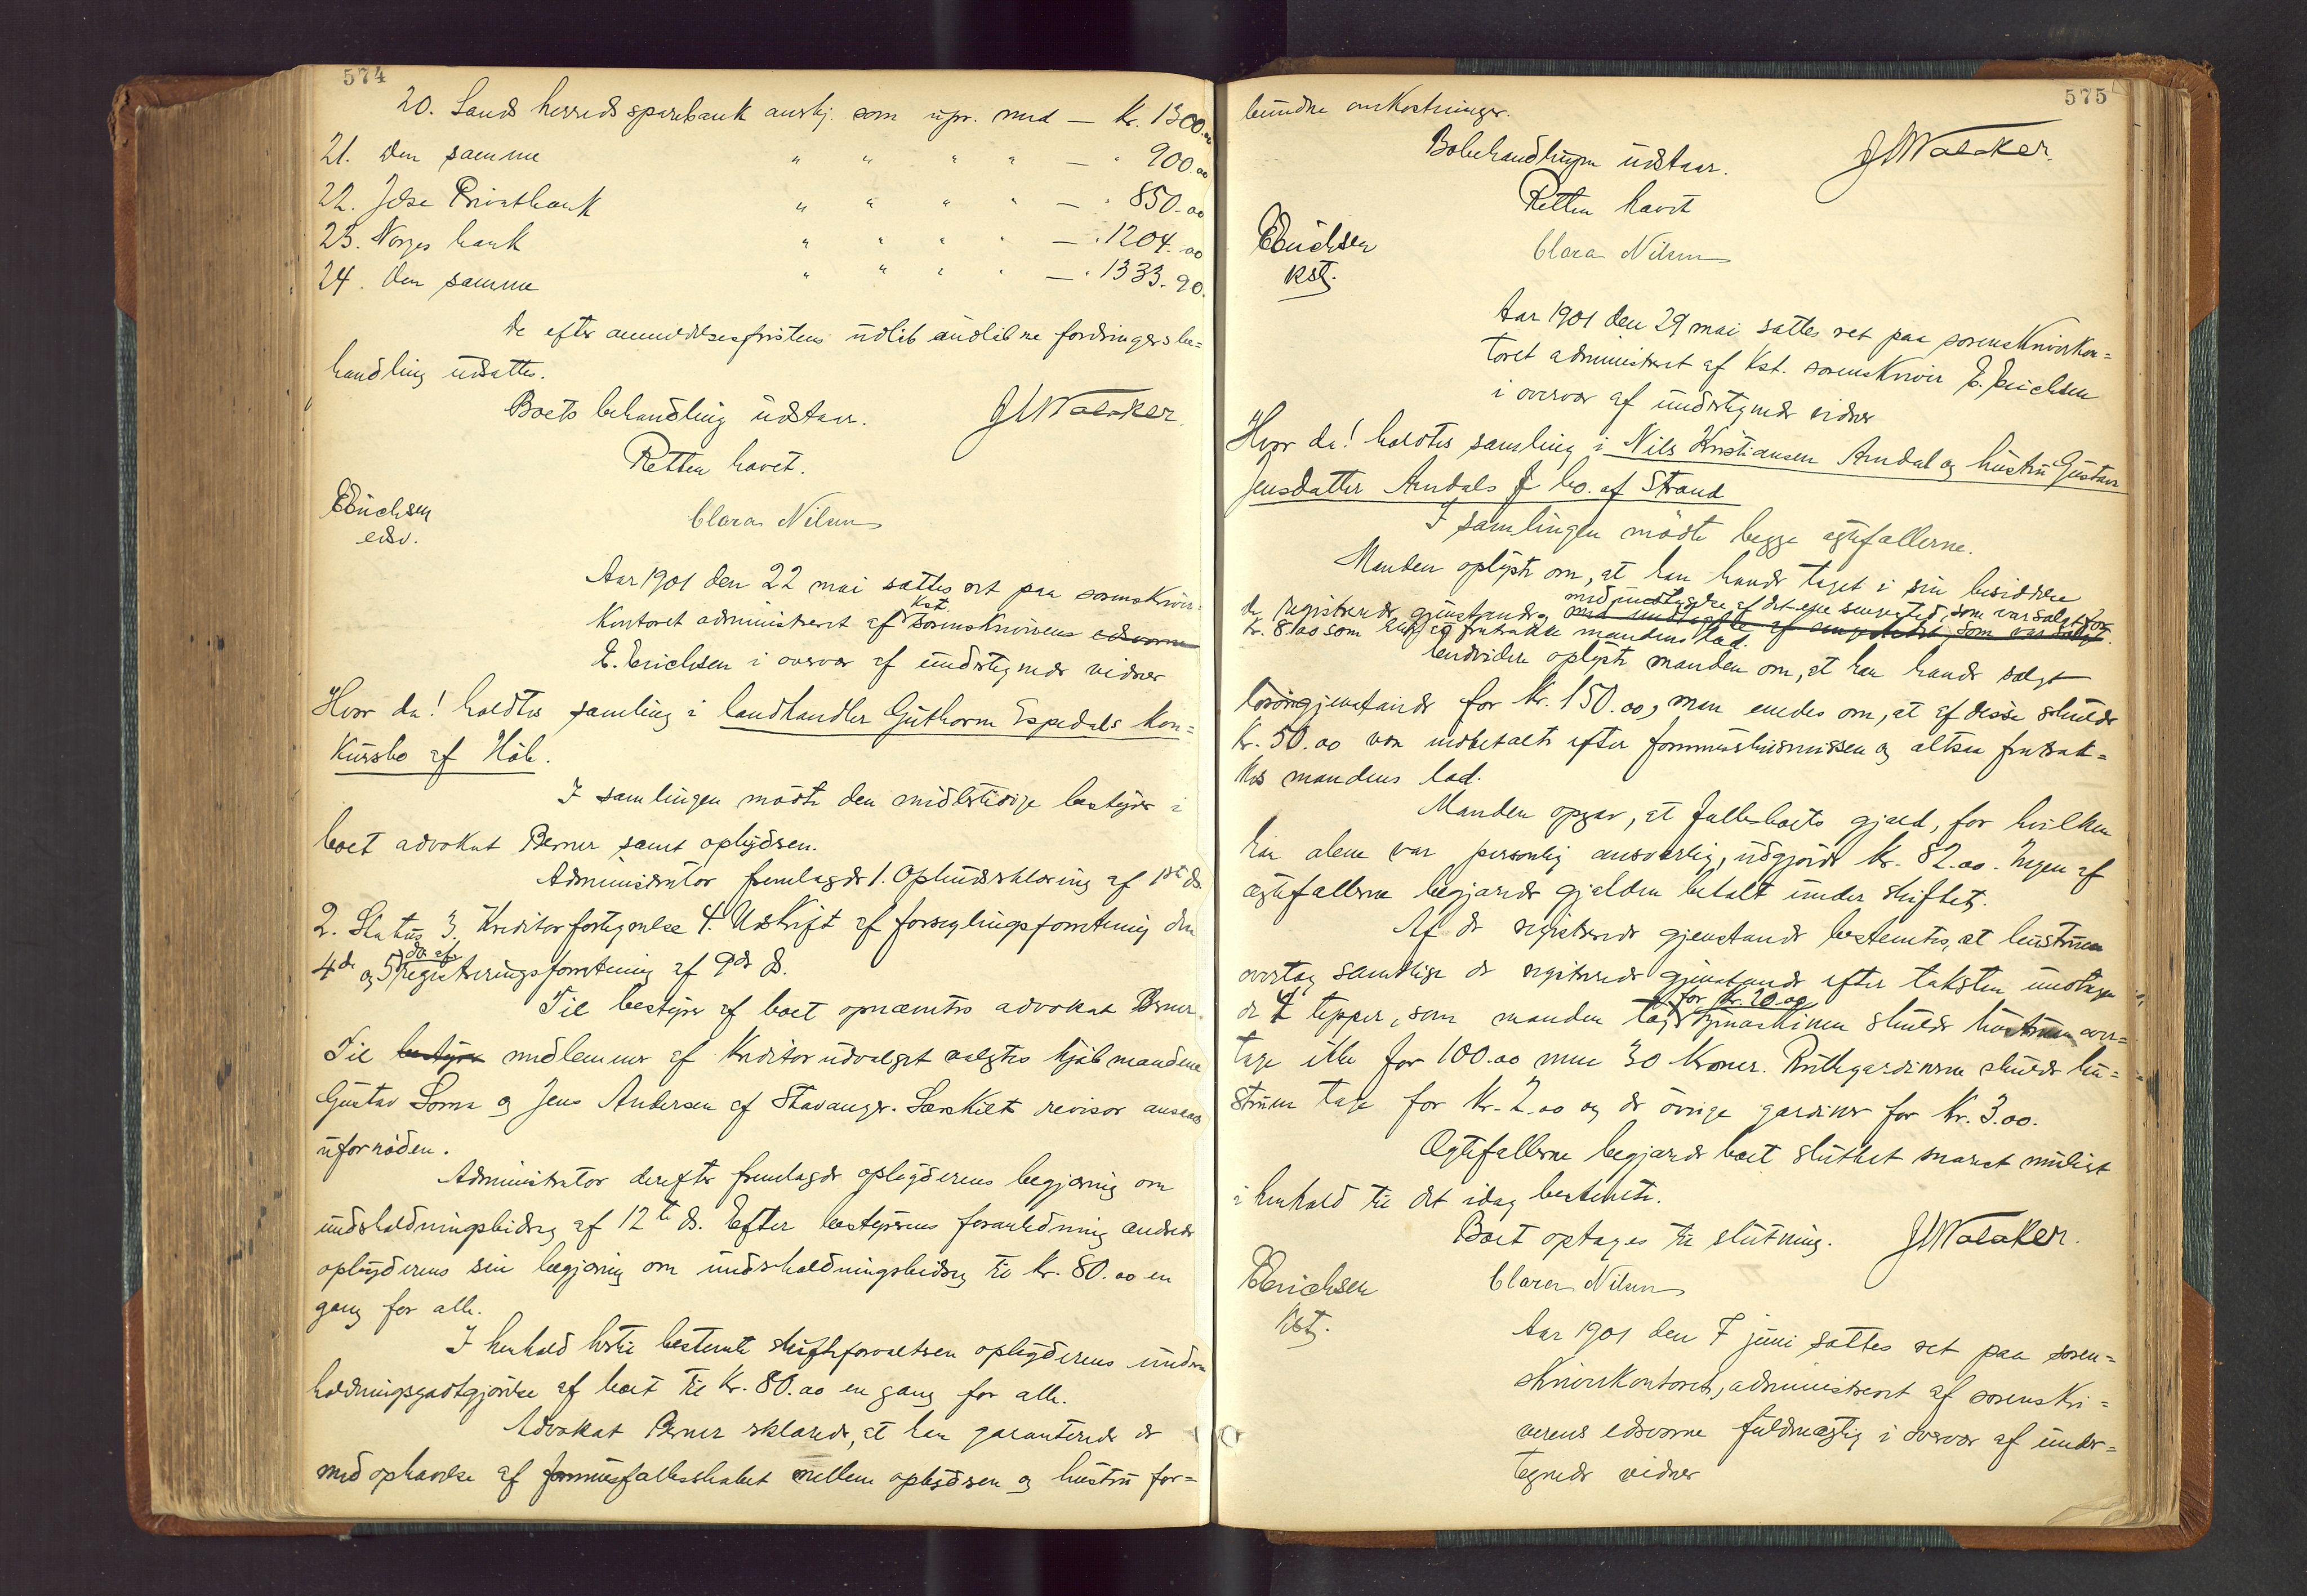 574
20. Sands herreds sparebank anerkj. som upr. med — Kr. 1300.00
21. Den samme " " " " — " 900.00
22. Jelse Privatbank " " " " — " 850.00
23. Norges bank " " " " — " 1204.00
24. Den samme " " " " — " 1333.90.
De efter anmeldelsesfristens udløb indløbne fordringers be=
handling udsattes.
Boets behandling udstaar. JWalaker.
Retten hævet.
EErichsen
edsv.
Clara Nilsen
Aar 1901 den 22 mai sattes ret paa sorenskriver=
kontoret administreret af kst. sorenskriverens edsvorne
E. Erichsen i overvær af undertegnede vidner
Hvor da! holdtes samling i landhandler Guthorm Espedals kon=
kursbo af Høle.
I samlingen mødte den midlertidige bestyrer i
boet advokat Berner samt opbyderen.
Administrator fremlagde 1. Opbudserklæring af 1ste ds.
2. Status 3. Kreditorfortegnelse 4. Udskrift af forseglingsforretning den
4de og 5 do af registreringsforretning af 9de ds.
Til bestyrer af boet opnævntes advokat Berner.
Til bestyrer medlemmer af kreditorudvalget valgtes kjøbmændene
Gustav Soma og Jens Andersen af Stavanger. Særskilt revisor ansaaes
ufornøden.
Administrator derefter fremlagde opbyderens begjæring om
underholdningsbidrag af 12te ds. Efter bestyrerens foranledning ændrede
opbyderens sin begjæring om underholdningsbidrag til Kr. 80.00 en
gang for alle.
I henhold hertil bestemte skifteforvalteren opbyderens under=
holdningsgodtgjørelse af boet til Kr. 80.00 en gang for alle.
Advokat Berner erklærede, at han garanterede de
med ophævelse af formuesfællesskabet mellem opbyderen og hustru for=
575
bundne omkostninger.
Bobehandlingen udstaar. JWalaker.
Retten hævet
EErichsen
kst.
Clara Nilsen
Aar 1901 den 29 mai sattes ret paa sorenskriverkon=
toret administreret af kst. sorenskriver E. Erichsen
i overvær af undertegnede vidner
Hvor da! holdtes samling i Nils Kristiansen Arndal og hustru Gustava
Jensdatter Arndals f bo. af Strand
I samlingen mødte begge ægtefællerne.
Manden oplyste om, at han havde taget i sin besiddelse
de registrerede gjenstande, med undtagelse af det ene sengested, som var solgt for
med undtagelse af sengestedet, som var solgt.
Kr. 8.00 som blev at fratrække mandens lod.
Endvidere oplyste manden om, at han havde solgt
løsøregjenstande for Kr. 150.00, man enedes om, at af disse skulde
Kr. 50.00 være indbetalt efter formueshusmissen og altsaa fratræk=
kes mandens lod.
Manden opgav, at fællesboets gjæld, for hvilken
han alene var personlig ansvarlig, udgjorde Kr. 82.00. Ingen af
ægtefællerne begjærede gjælden betalt under skiftet.
Af de registrerede gjenstande bestemtes, at hustruen
overtog samtlige de registrerede gjenstande efter taksten undtagen
de 4 tepper, som manden tog for Kr. 20.00 Symaskinen skulde hustruen over=
tage ikke for 100.00 men 30 Kroner. Rullegardinerne skulde hu=
struen tage for Kr. 2.00 og de øvrige gardiner for Kr. 3.00.
Ægtefællerne begjærede boet sluttet snarest muligt
i henhold til det idag bestemte.
Boet optages til slutning. JWalaker.
EErichsen
kst.
Clara Nilsen
Aar 1901 den 7 juni sattes ret paa soren=
skriverkontoret, administreret af sorenskri=
verens edsvorne fuldmægtig i overvær af under=
tegnede vidner